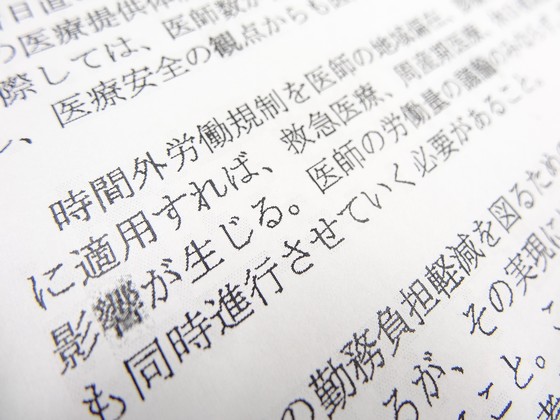 日直
の医療提供体
際しては、医師数が
、医療安全の観点からも
時間外労働規制を医師の地域偏在
に適用すれば、救急医療、周産期医療、
影響が生じる。医師の労働量の議論のみならず
も同時進行させていく必要があること。
の勤務負担軽減を図るため
るが、その実現に
こと。